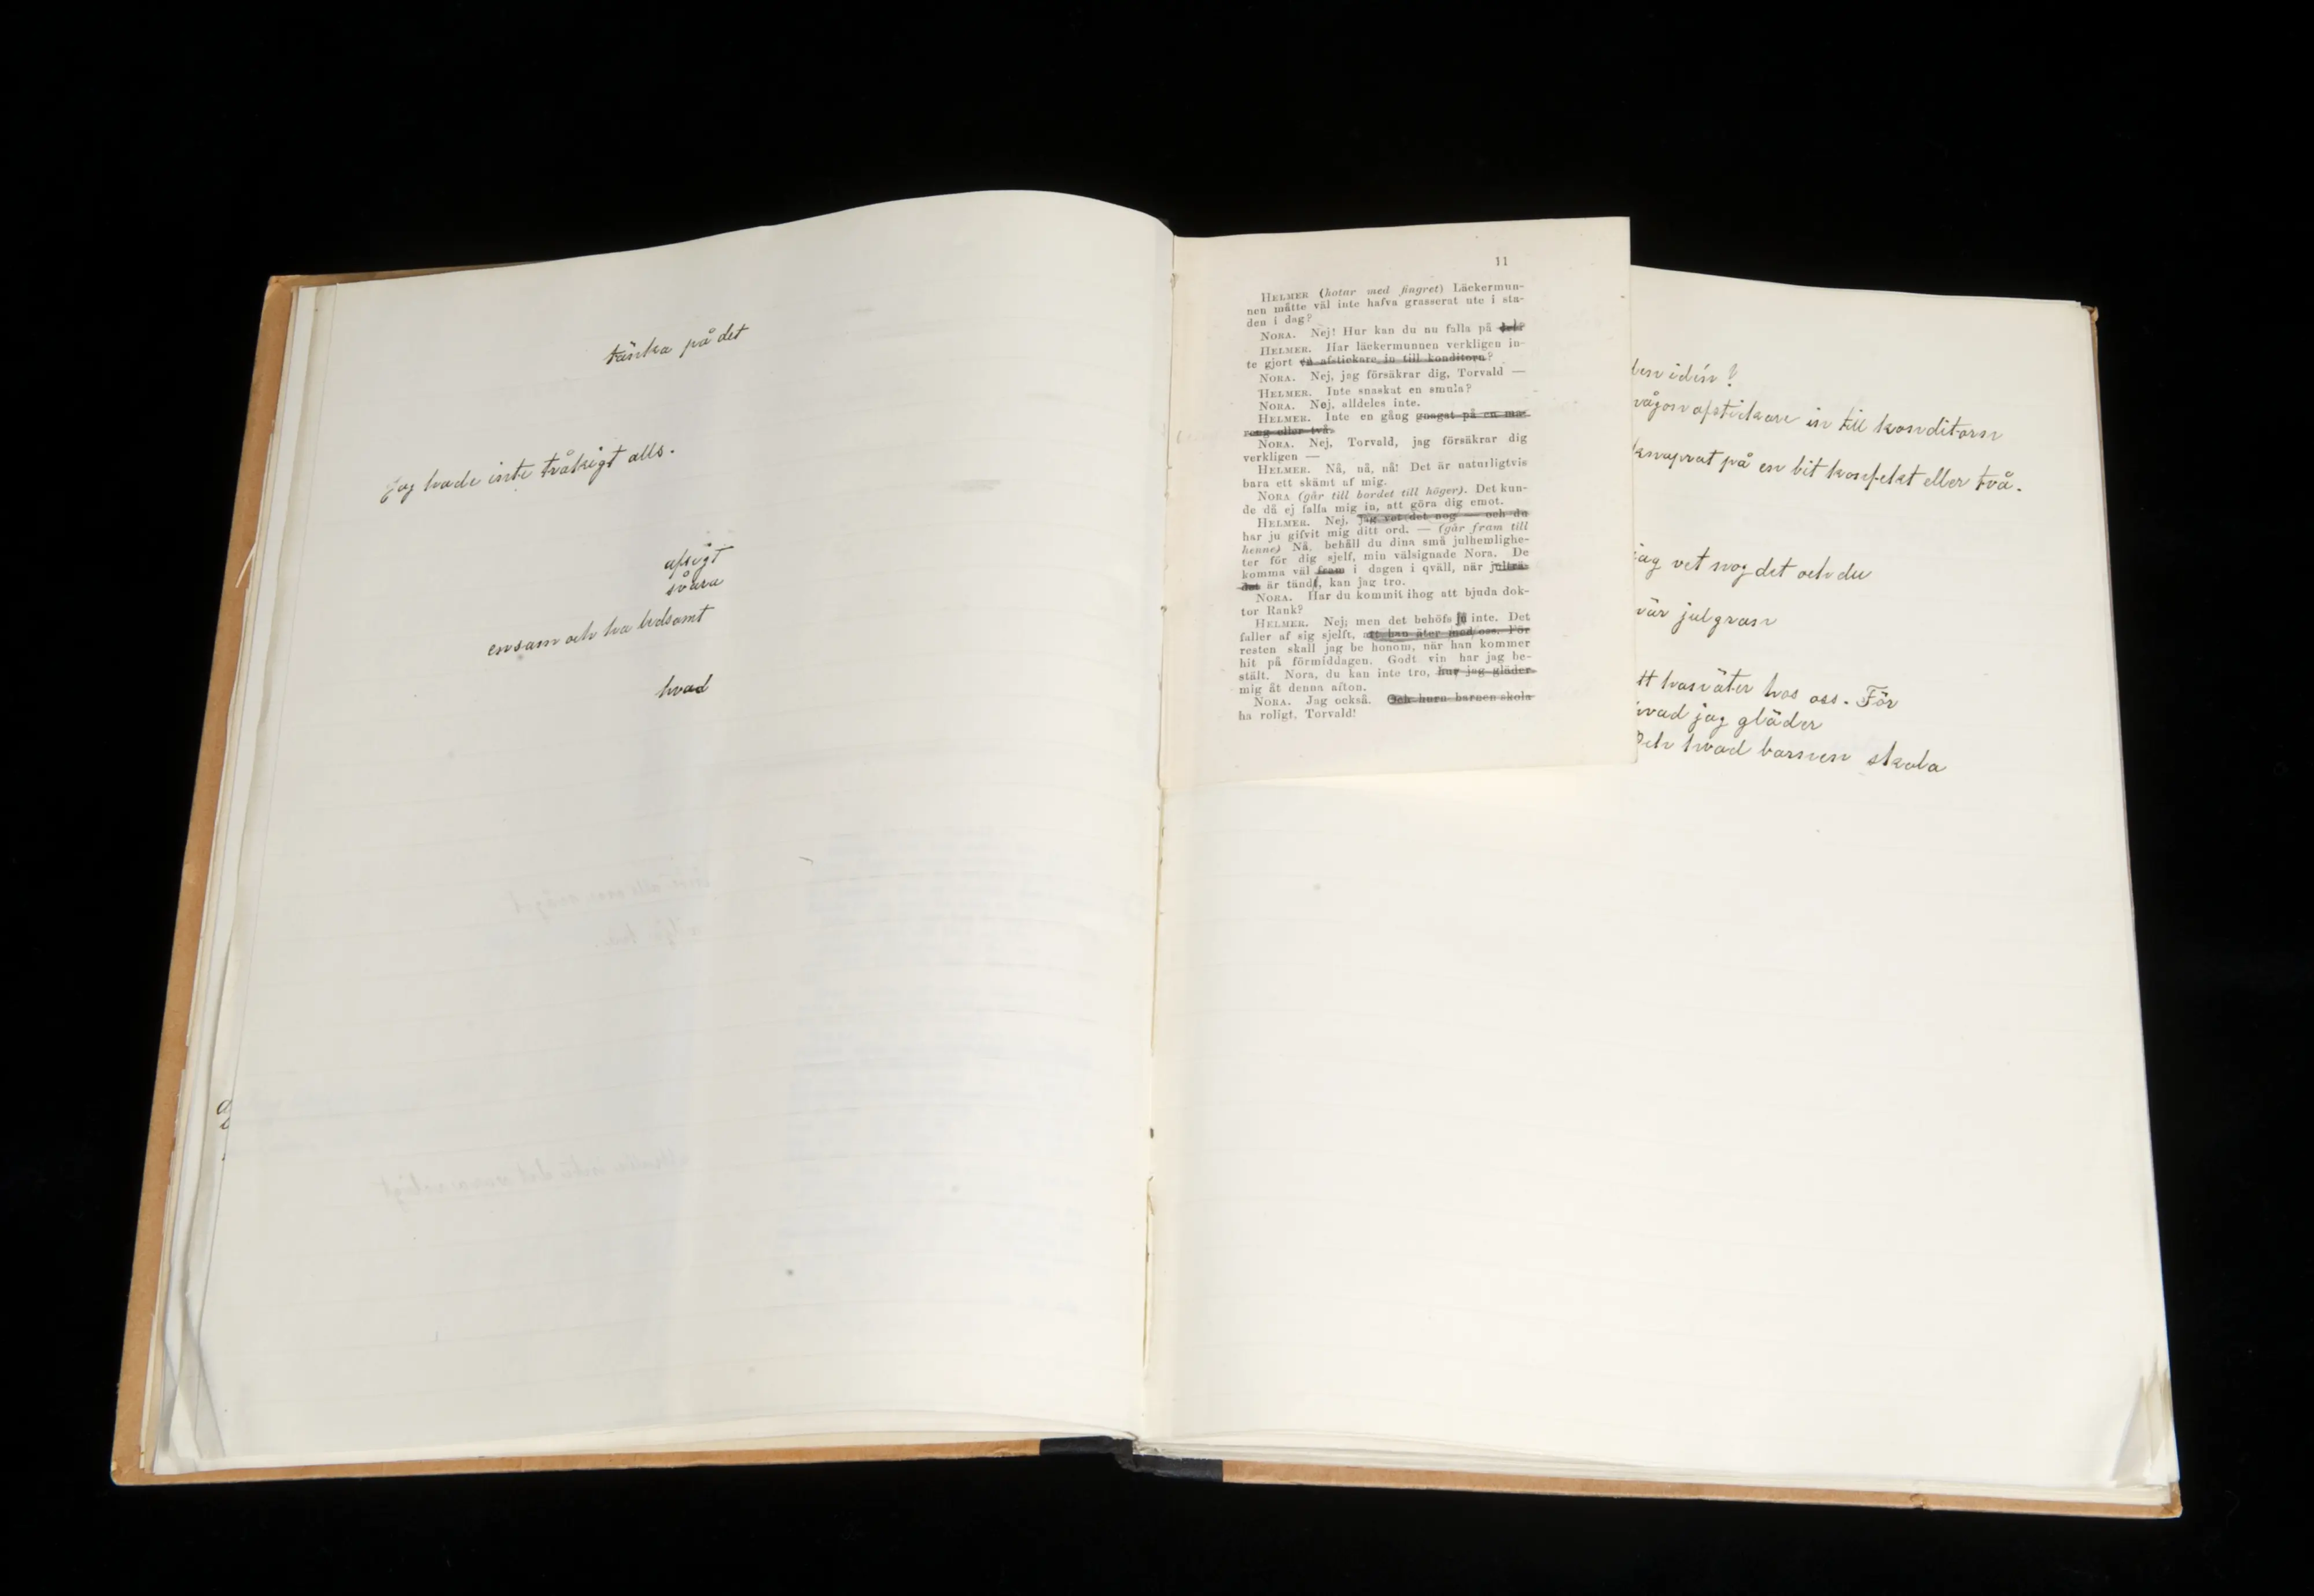 tänka på det
Jag hade inte tråkigt alls.
afsigt
svåra
ensam och ha ledsamt
hvad
11
HELMER (hotar med fingret) Läckermun-
nen måtte väl inte hafva grasserat ute i sta-
den i dag?
NORA. Nej! Hur kan du nu falla på det?
HELMER. Har läckermunnen verkligen in-
te gjort en afstickare in till konditorn?
NORA. Nej, jag försäkrar dig, Torvald —
HELMER. Inte snaskat en smula?
NORA. Nej, alldeles inte.
HELMER. Inte en gång gnagat på en ma-
rong eller två.
NORA. Nej, Torvald, jag försäkrar dig
verkligen —
HELMER. Nå, nå, nå! Det är naturligtvis
bara ett skämt af mig.
NORA (går till bordet till höger). Det kun-
de då ej falla mig in, att göra dig emot.
HELMER. Nej, jag vet det nog — och du
har ju gifvit mig ditt ord. — (går fram till
henne) Nå, behåll du dina små julhemlighe-
ter för dig sjelf, min välsignade Nora. De
komma väl fram i dagen i qväll, när julträ-
det är tändt, kan jag tro.
NORA. Har du kommit ihog att bjuda dok-
tor Rank?
HELMER. Nej; men det behöfs ju inte. Det
faller af sig sjelft, att han äter med oss. För
resten skall jag be honom, när han kommer
hit på förmiddagen. Godt vin har jag be-
stält. Nora, du kan inte tro, hur jag gläder
mig åt denna afton.
NORA. Jag också. Och hurn barnen skola
ha roligt, Torvald!
den idén?
någon afstickare in till konditorn
knaprat på en bit konfekt eller två.
jag vet nog det och du
vår julgran
tt han äter hos oss. För
hvad jag gläder
Och hvad barnen skola